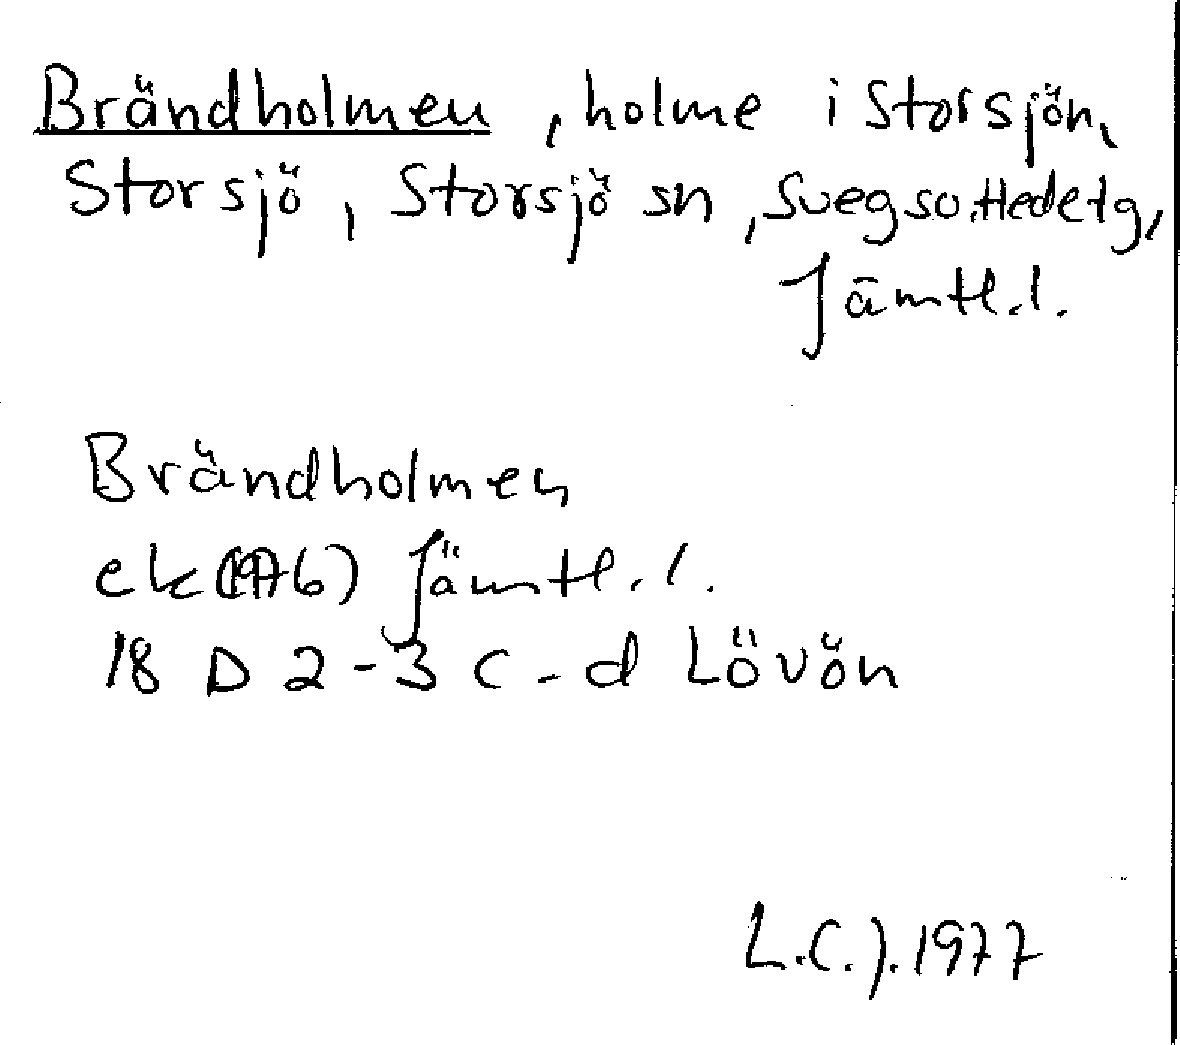 Brändholmen, holme i Storsjön,
Storsjö, Storsjö sn, Svegs o. Hede tg,
Jämtl. l.
Brändholmen
ek (1976) Jämtl. l.
18 D 2-3 c-d Lövön
L.C.J. 1977